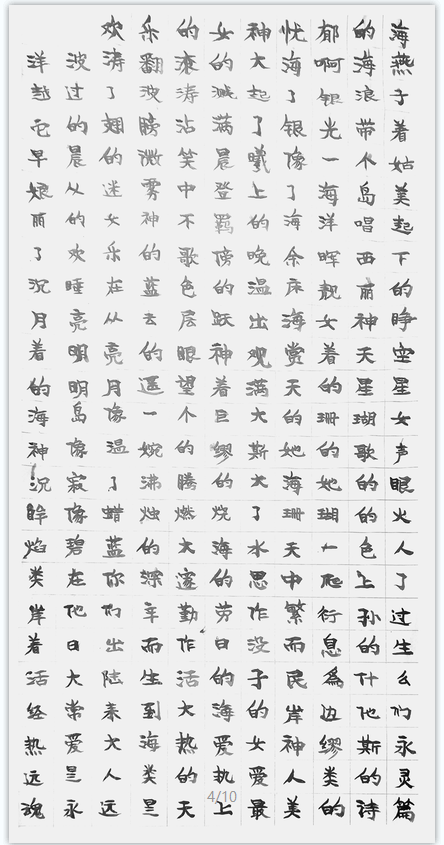 欢乐的女神忧郁的海
洋波涛翻滚的大海啊海燕
越过了波涛溅起了银浪子
它的翅膀沾满了银光带着
早晨的微笑晨曦像一个姑
娘从迷雾中登上了海岛美
丽的女神不羁的海洋唱起
了欢乐的歌傍晚余晖西下
沉睡在蓝色的温床靓丽的
月亮从云层跃出海女神睁
着明亮的眼神观赏着天空
的明月遥望着满天的星星
海岛像一个巨大的珊瑚女
神像温婉的缪斯她的歌声
沉寂了沸腾的大海她的眼
眸像蜡烛燃烧了珊瑚的火
焰碧蓝的大海水天一色人
类在你深邃的思中爬上了
岸他们辛勤劳作繁衍孙过
着日出而作日没而息的生
活大陆生活的子民為什么
经常来到大海的岸边他们
热爱大海热爱女神缪斯永
远是人类的执爱人类的灵
魂永远是天上最美的诗篇
4/10